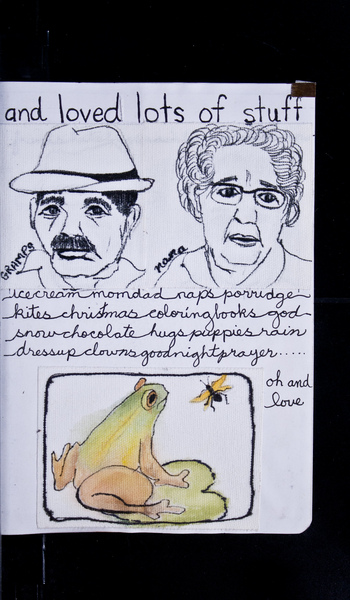 and loved lots of stuff
GRAMPS
nana
icecream momdad naps porridge
kites christmas coloringbooks god
snow chocolate hugs puppies rain
dressup clowns goodnightprayer......
oh and
love